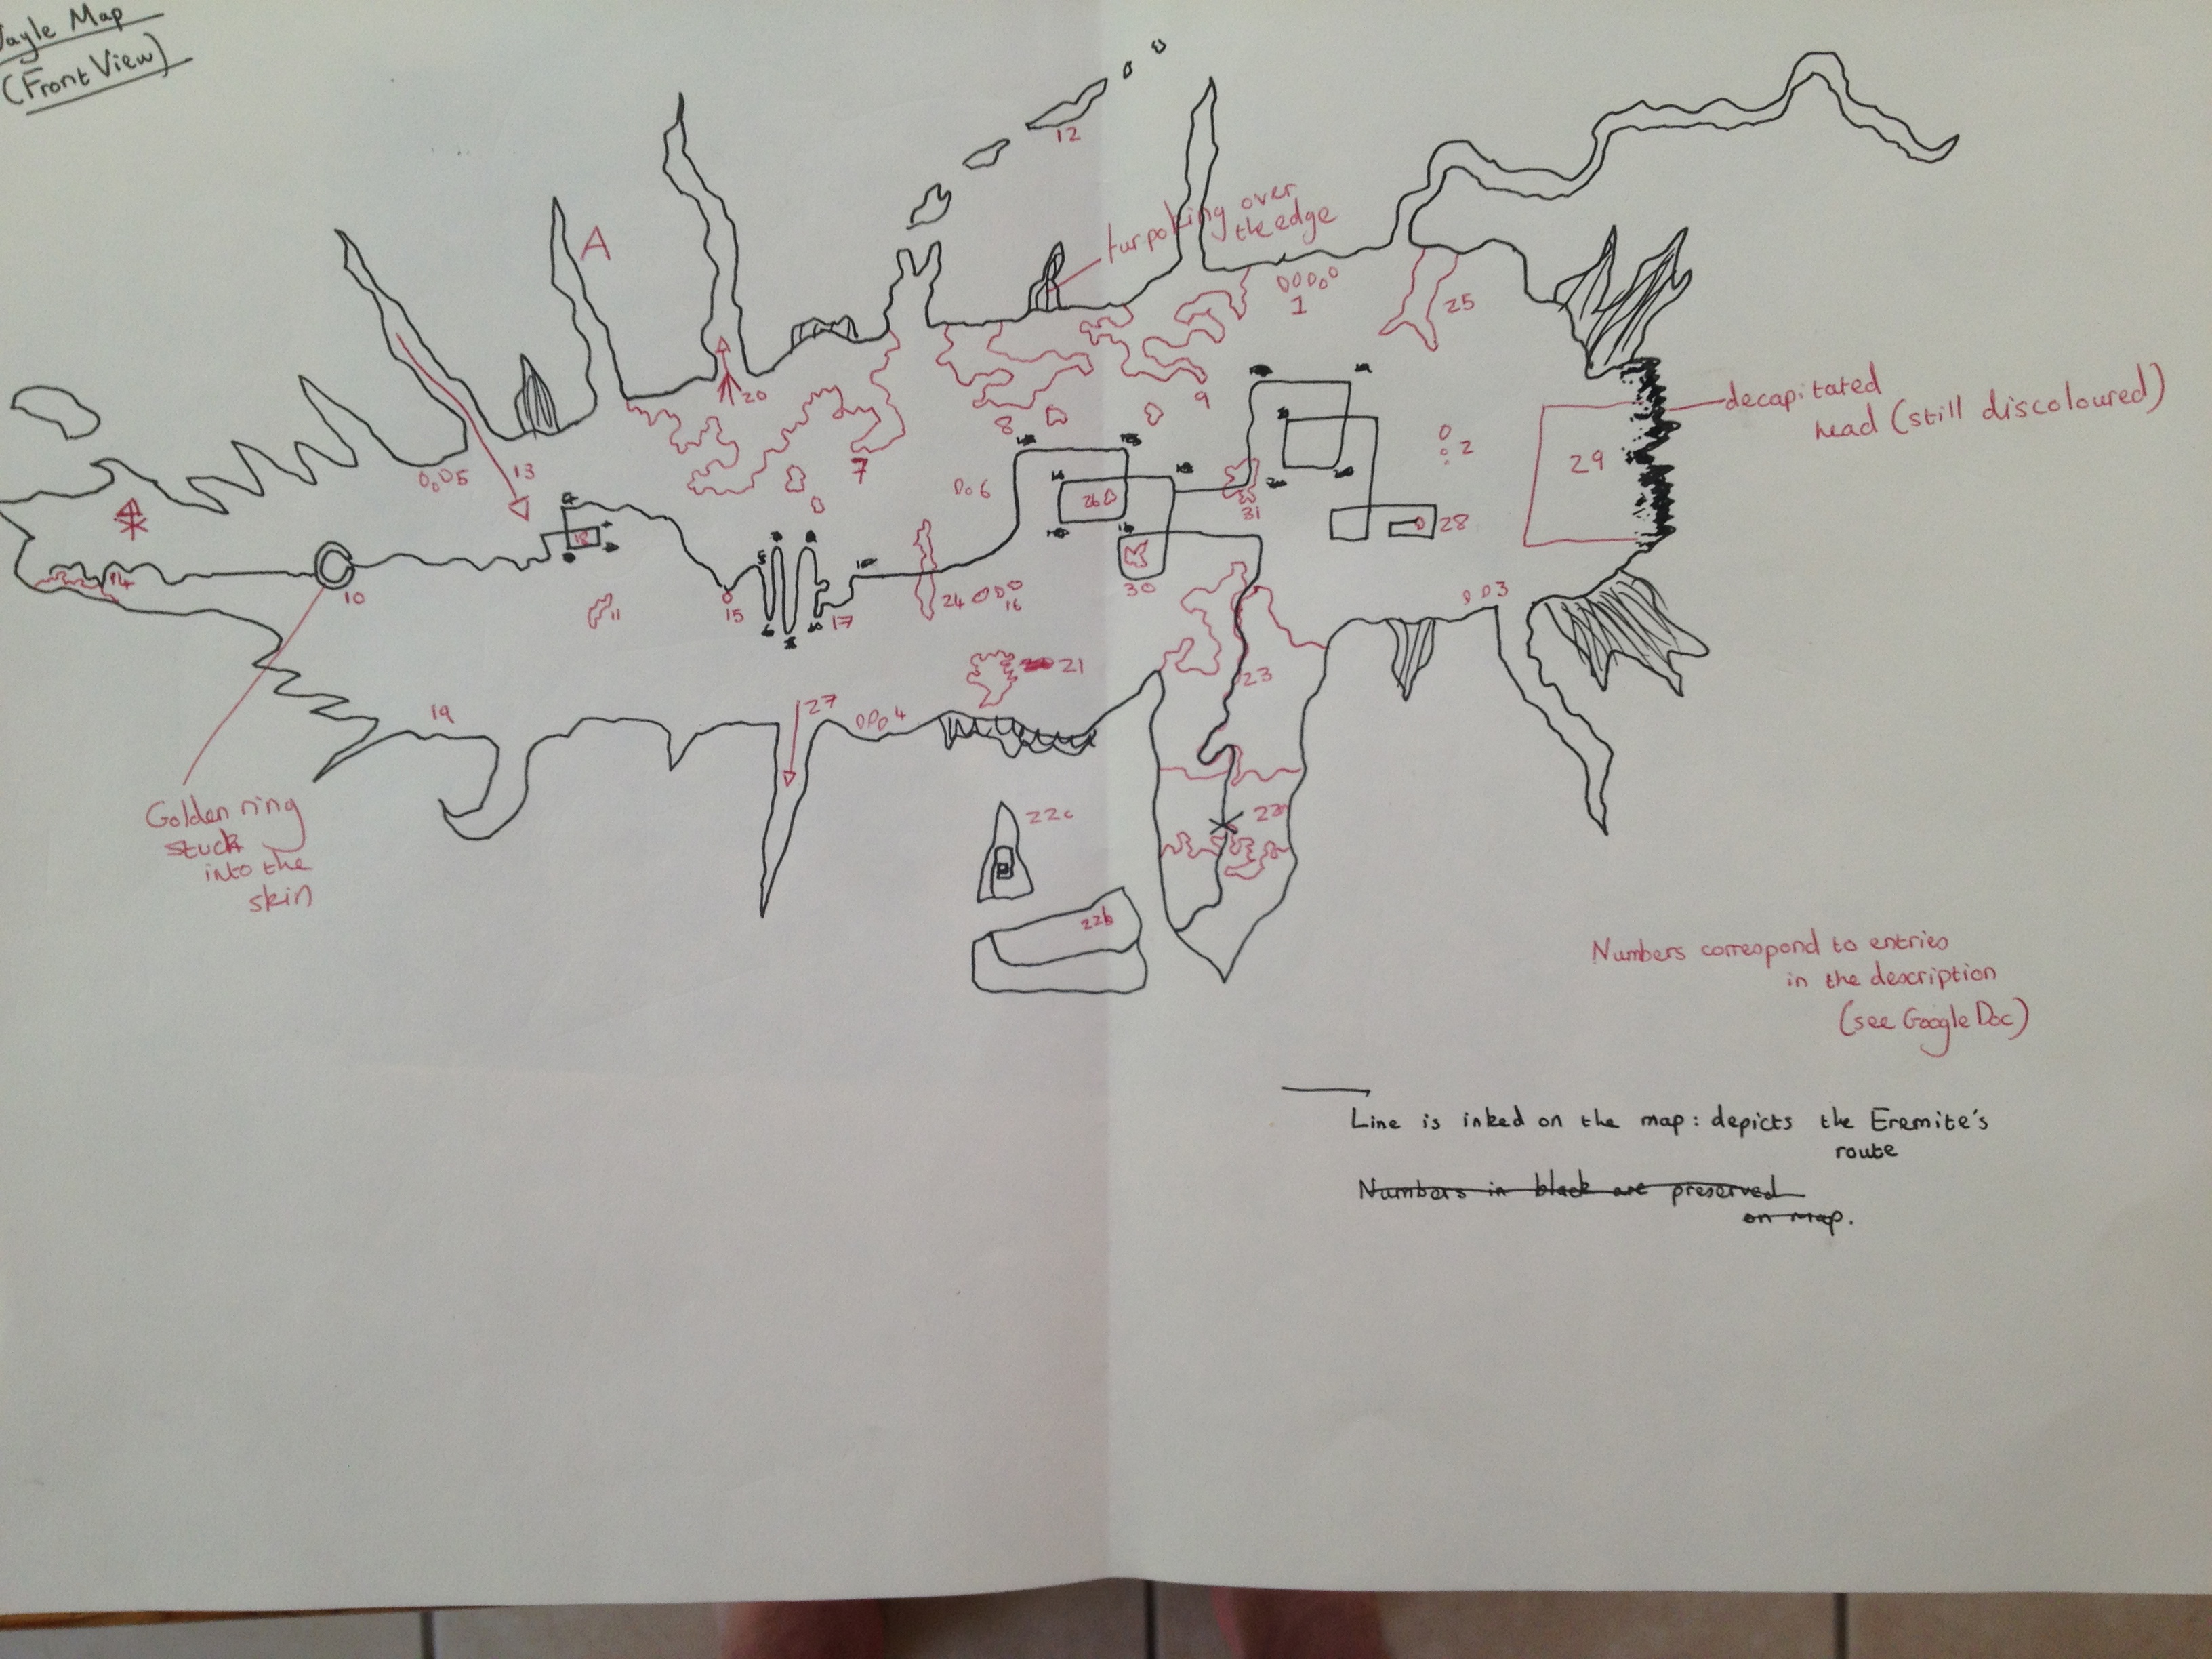 Map
(Front View)
12
A
fur poking over
the edge
1
25
20
decapitated
head (still discoloured)
9
8
7
2
29
5
13
6
26
31
28
18
14
10
11
15
17
24
16
30
3
21
23
19
27
4
22c
22a
Golden ring
stuck
into the
skin
22b
Numbers correspond to entries
in the description
(see Google Doc)
Line is inked on the map: depicts the Eremite's
route
Numbers in black are preserved
on map.